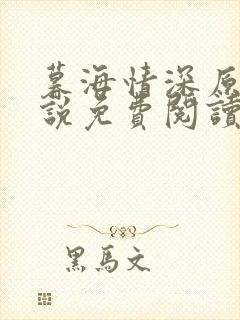 暮海情深原
說免費閱讀
黑馬文